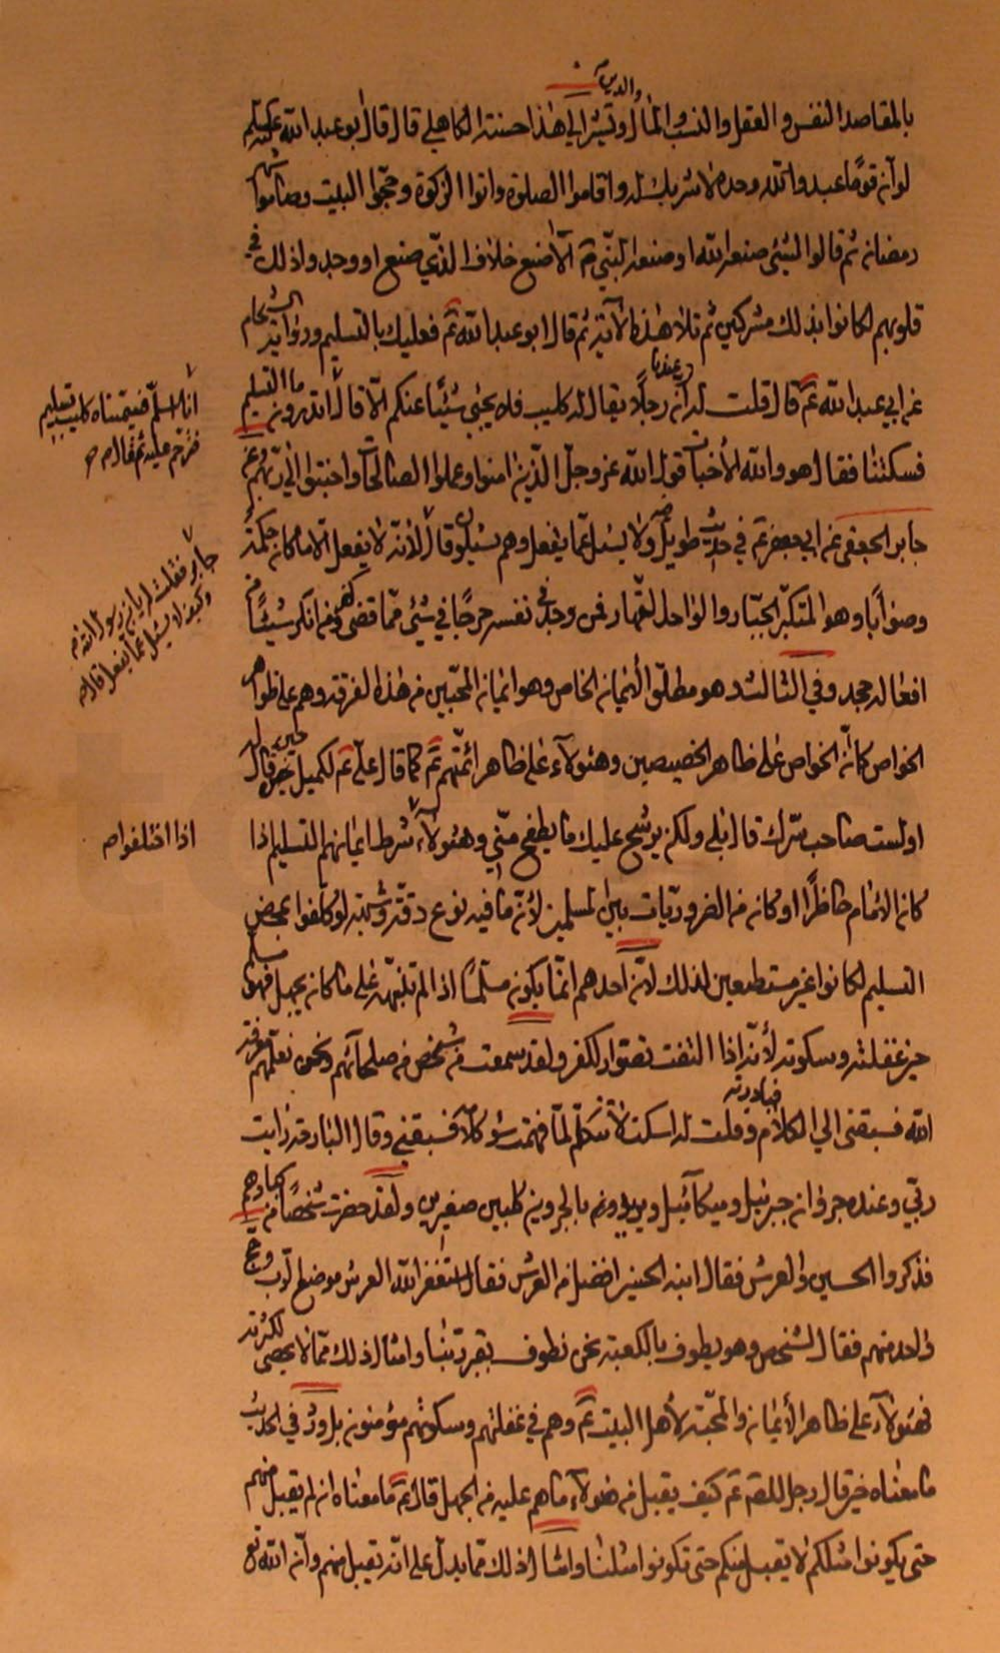 والدين
بالمقاصد النفس والعقل والنسب والمال وتشير الي هذا حسنة الكاهلي قال قال ابو عبد الله عليه السلم
لو أن قوما عبدوا الله وحده لا شريك له واقاموا الصلوة واتوا الزكوة وحجوا البيت وصاموا شهر
رمضان ثم قالوا لشيئ صنعه الله او صنعه النبي ص الا صنع خلاف الذي صنع او وجدوا ذلك في
قلوبهم لكانوا بذلك مشركين ثم تلا هذه الآية ثم قال ابو عبد الله ع فعليك بالتسليم ورواية الشحام
عن ابي عبد الله ع قال قلت له ان عندنا رجلا يقال له كليب فلا يجئ شيئا عنكم الا قال انا اسلم فسميناه كليب تسليم فترحم عليه ثم قال اتدرون ما التسليم
فسكتنا فقال هو والله الأخبات قول الله عز وجل الذين امنوا وعملوا الصالحات واخبتوا الي ربهم وعن
جابر الجعفي عن ابي جعفر ع في حديث طويل ولا يسئل عما يفعل وهم يسئلون قال جابر فقلت له يابن رسول الله وكيف لا يسئل عما يفعل قال لأنه لا يفعل الا ما كان حكمة
وصوابا وهو المتكبر الجبار والواحد القهار فمن وجد في نفسه حرجا في شئ مما قضي كفر ومن انكر شيئا من
افعاله جحد وفي الثالث وهو مطلق الأيمان الخاص وهو ايمان المحبين من هذه الفرقة وهم علي ظواهر
الخواص كما أن الخواص علي ظاهر الخصيصين وهئولآء علي ظاهر ائمتهم ع كما قال علي ع لكميل حين قال له
اولست صاحب سرك قال بلي ولكن يرشح عليك ما يطفح مني وهئولآء شرط ايمانهم التسليم اذا اختلفوا اذا
كان الامام حاظرا او كان من الضروريات بين المسلمين لأن ما فيه نوع دقة وشبهة لو كلفوا بمحض
التسليم لكانوا غير مستطيعين لذلك لأن احدهم انما يكون مسلما اذا لم تنبهه علي ما كان يجهل فهو مسلم
حين غفلته وسكوته لأنه اذا التفت تصور الكفر ولقد سمعت من شخص من صلحائهم ونحن نعلمهم معرفة
الله فسبقني الي الكلام فبادرته وقلت له اسكت لا تتكلم لما فهمت سوء كلامه فسبقني وقال البارحة رايت
ربي وعنده جروان جبرئيل وميكائيل ويريدون بالجروين كلبين صغيرين ولقد حضرت شخصا من كبارهم
فذكروا الحسين والعرش فقال ابنه الحسين افضل من العرش فقال استغفر الله العرش موضع الرب وحج
واحد منهم فقال لشخص وهو يطوف بالكعبة نحن نطوف بقبر ربنا وامثال ذلك مما لا يحصي لكثرته
فهئولآء علي ظاهر الأيمان والمحبة لأهل البيت ع وهم في غفلتهم وسكوتهم مؤمنون بل ورد في الحديث
ما معناه خير قال رجل للصادق ع كيف يقبل من هئولآء ما هم عليه من الجهل قال ع ما معناه ان لم يقبل منهم
حتي يكونوا مثلكم لا يقبل منكم حتي تكونوا مثلنا وامثال ذلك مما يدل علي انه يقبل منهم وأن الله تع